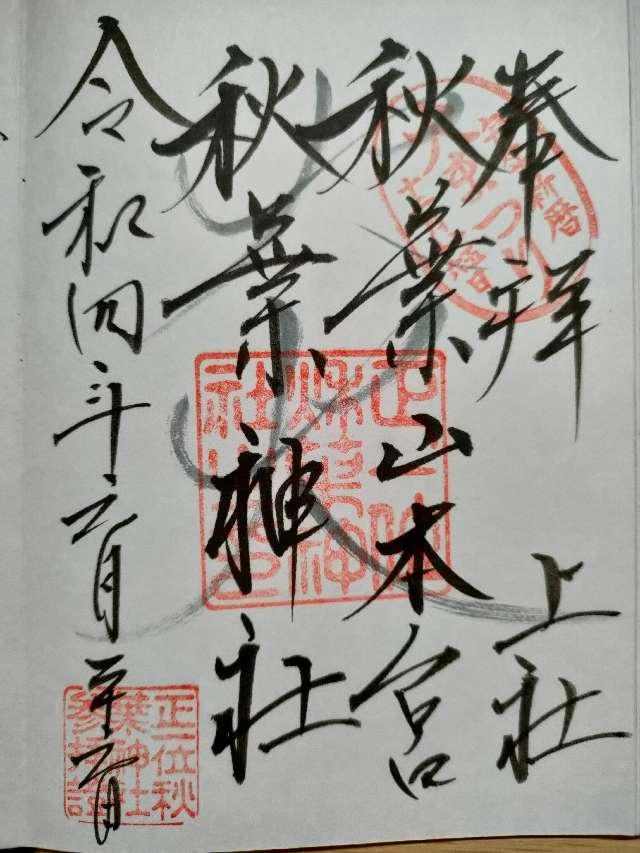 奉拝 上社
秋葉山本宮
秋葉神社
令和四年六月二十六日
正一位
秋葉神
社之璽
正一位秋
葉神社
参拝證